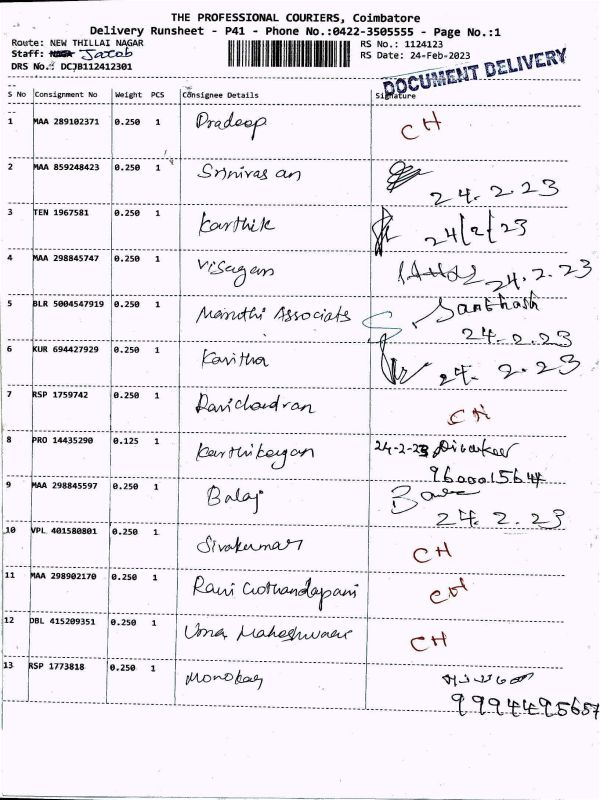 THE PROFESSIONAL COURIERS, Coimbatore
Delivery Runsheet - P41 - Phone No.:0422-3505555 - Page No.:1
Route: NEW THILLAI NAGAR RS No.: 1124123
Staff: Jacob RS Date: 24-Feb-2023
DRS No.: DCJB112412301
DOCUMENT DELIVERY
S No Consignment No Weight PCS Consignee Details Signature
1 MAA 289102371 0.250 1 Pradeep CH
2 MAA 859248423 0.250 1 Srinivasan 24.2.23
3 TEN 1967581 0.250 1 Karthik 24/2/23
4 MAA 298845747 0.250 1 Visagan 24.2.23
5 BLR 5004547919 0.250 1 Maruthi Associats Santhosh
24.2.23
6 KUR 694427929 0.250 1 Kavitha 24. 2.23
7 RSP 1759742 0.250 1 Ravichandran CH
8 PRO 14435290 0.125 1 Karthikeyan 24-2-23 Divakar
9 MAA 298845597 0.250 1 Balaji
24. 2.23
10 VPL 401580801 0.250 1 Sivakumar CH
11 MAA 298902170 0.250 1 Ravi Cothandapani CH
12 DBL 415209351 0.250 1 Uma Maheshwari CH
13 RSP 1773818 0.250 1
9994495657